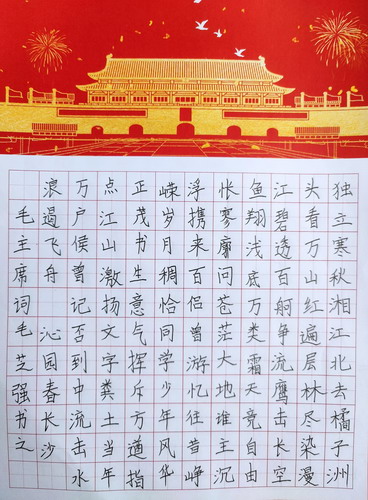 独立寒秋湘江北去橘子洲
头看万山红遍层林尽染漫
江碧透百舸争流鹰击长空
鱼翔浅底万类霜天竞自由
怅寥廓问苍茫大地谁主沉
浮携来百侣曾游忆往昔峥
嵘岁月稠恰同学少年风华
正茂书生意气挥斥方遒指
点江山激扬文字粪土当年
万户侯曾记否到中流击水
浪遏飞舟 沁园春长沙
毛主席词毛芝强书之